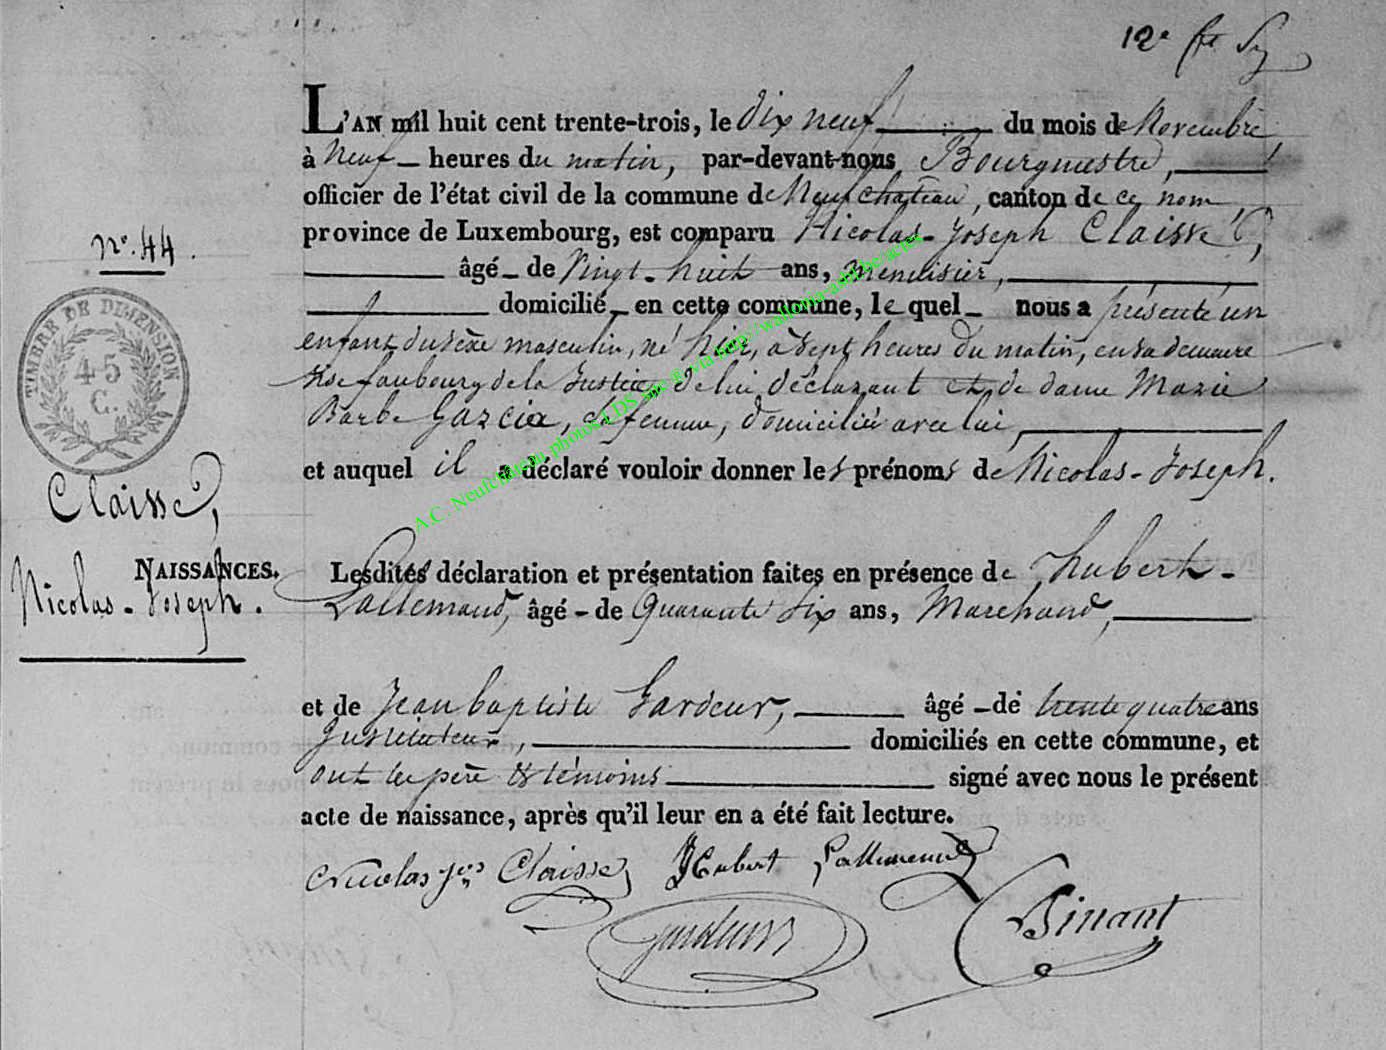 12e
L'AN mil huit cent trente-trois, le dix neuf du mois de Novembre,
à Neuf heures du matin, par-devant-nous Bourgmestre,
officier de l'état civil de la commune de Neufchateau, canton de ce nom,
province de Luxembourg, est comparu Nicolas-Joseph Claisse,
âgé de Vingt-huit ans, menuisier,
domicilié en cette commune, le quel nous a présenté un
enfant du sexe masculin, né hier, à sept heures du matin, en sa demeure
faubourg de la Justice, de lui déclarant et de dame Marie
Barbe Garcia, sa femme, domiciliée avec lui,
et auquel il a déclaré vouloir donner les prénoms de Nicolas-Joseph.
No. 44.
TIMBRE DE DIMENSION
45
C.
Claisse,
NAISSANCES.
Nicolas-Joseph.
Lesdites déclaration et présentation faites en présence de Hubert
Lallemand, âgé de Quarante Six ans, Marchand,
et de Jean baptiste Gardeur, âgé de trente quatre ans
Instituteur, domiciliés en cette commune, et
ont les père & témoins signé avec nous le présent
acte de naissance, après qu'il leur en a été fait lecture.
Nicolas Jos Claisse Hubert Lallemand
Gardeur Binant
A.C. Neufchâteau photos LDS site ® via http://wallonia-asbl.be/actes